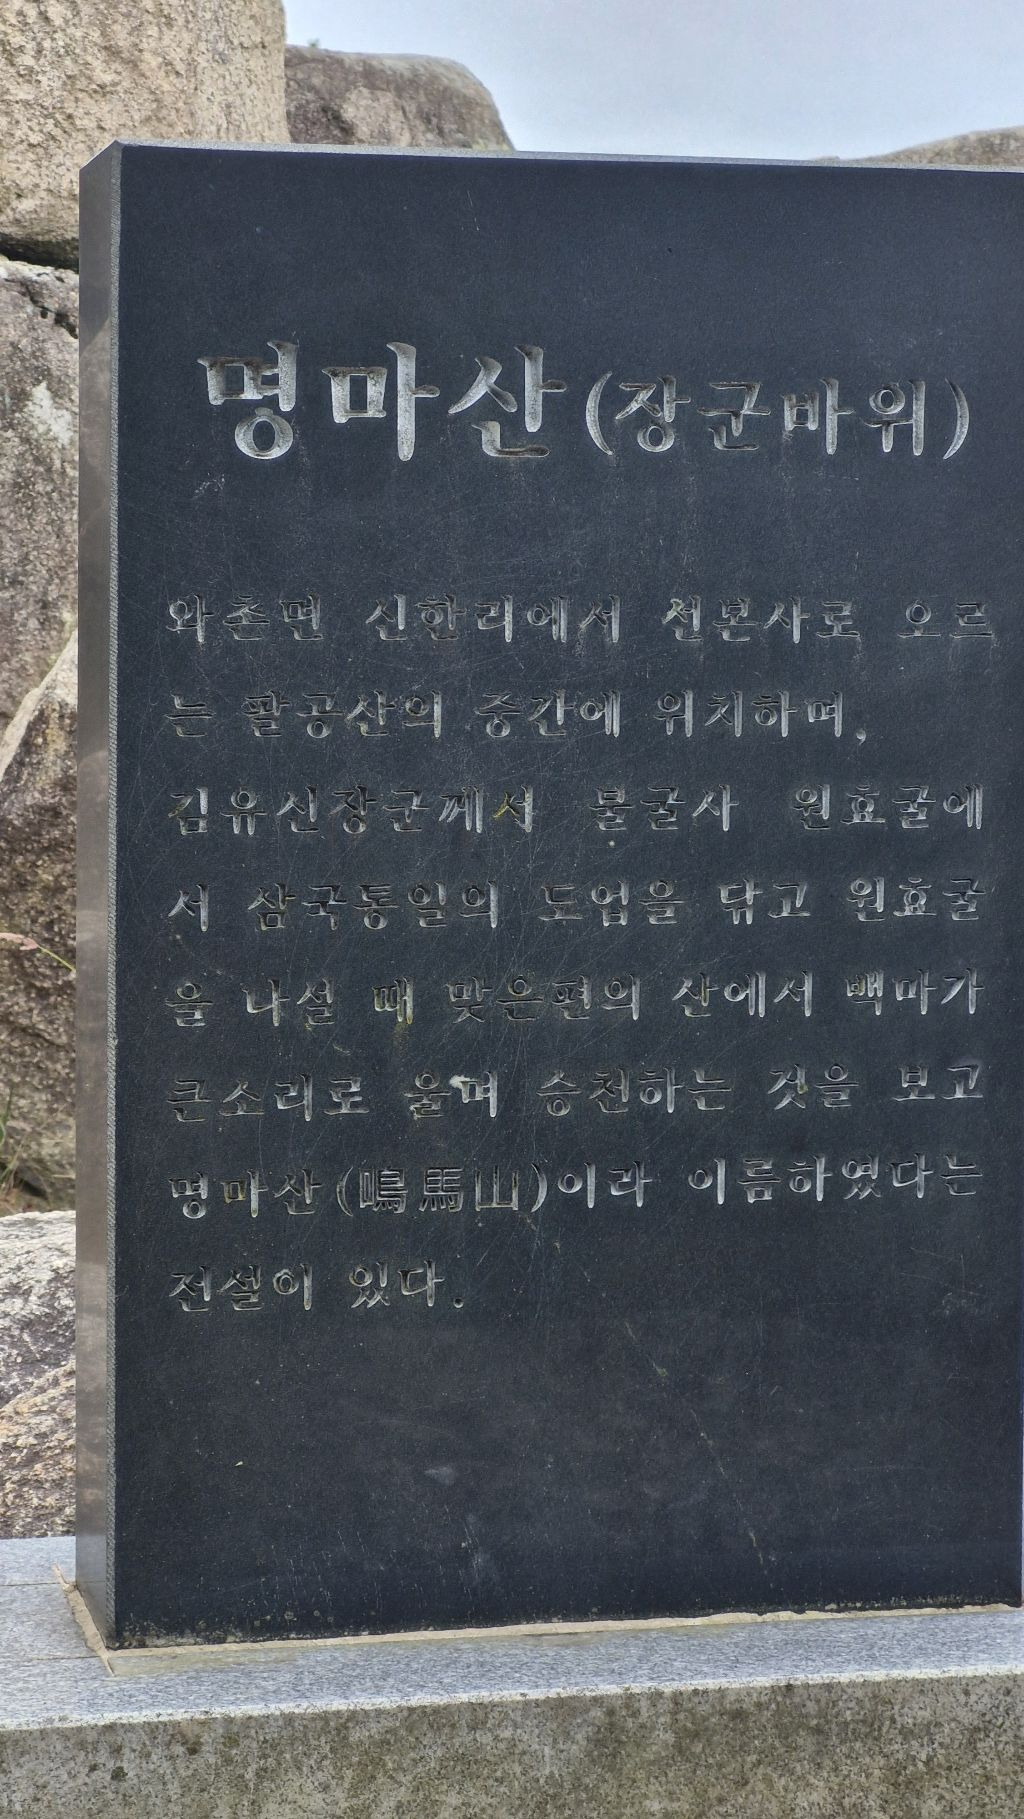 명마산(장군바위)
와촌면 신한리에서 선본사로 오르
는 팔공산의 중간에 위치하며,
김유신장군께서 불굴사 원효굴에
서 삼국통일의 도업을 닦고 원효굴
을 나설 때 맞은편의 산에서 백마가
큰소리로 울며 승천하는 것을 보고
명마산(鳴馬山)이라 이름하였다는
전설이 있다.